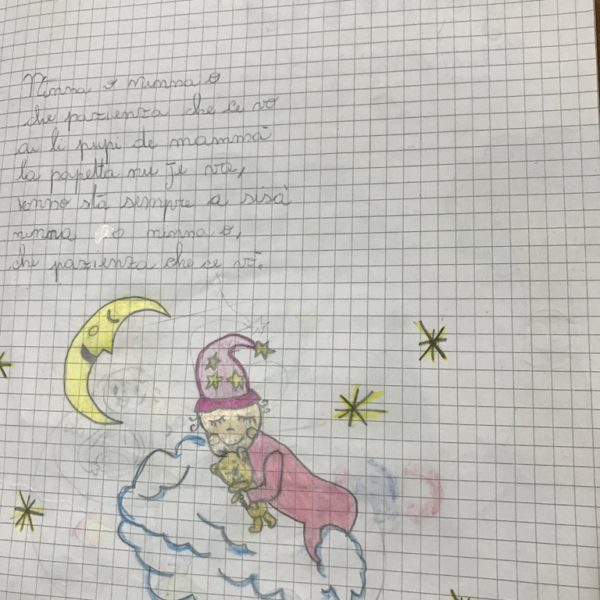 Ninna o ninna o
che pazienza che ce vo
a li pupi de mammà
la papetta nu je va,
vonno stà sempre a sisà
ninna o ninna o,
che pazienza che ce vò.